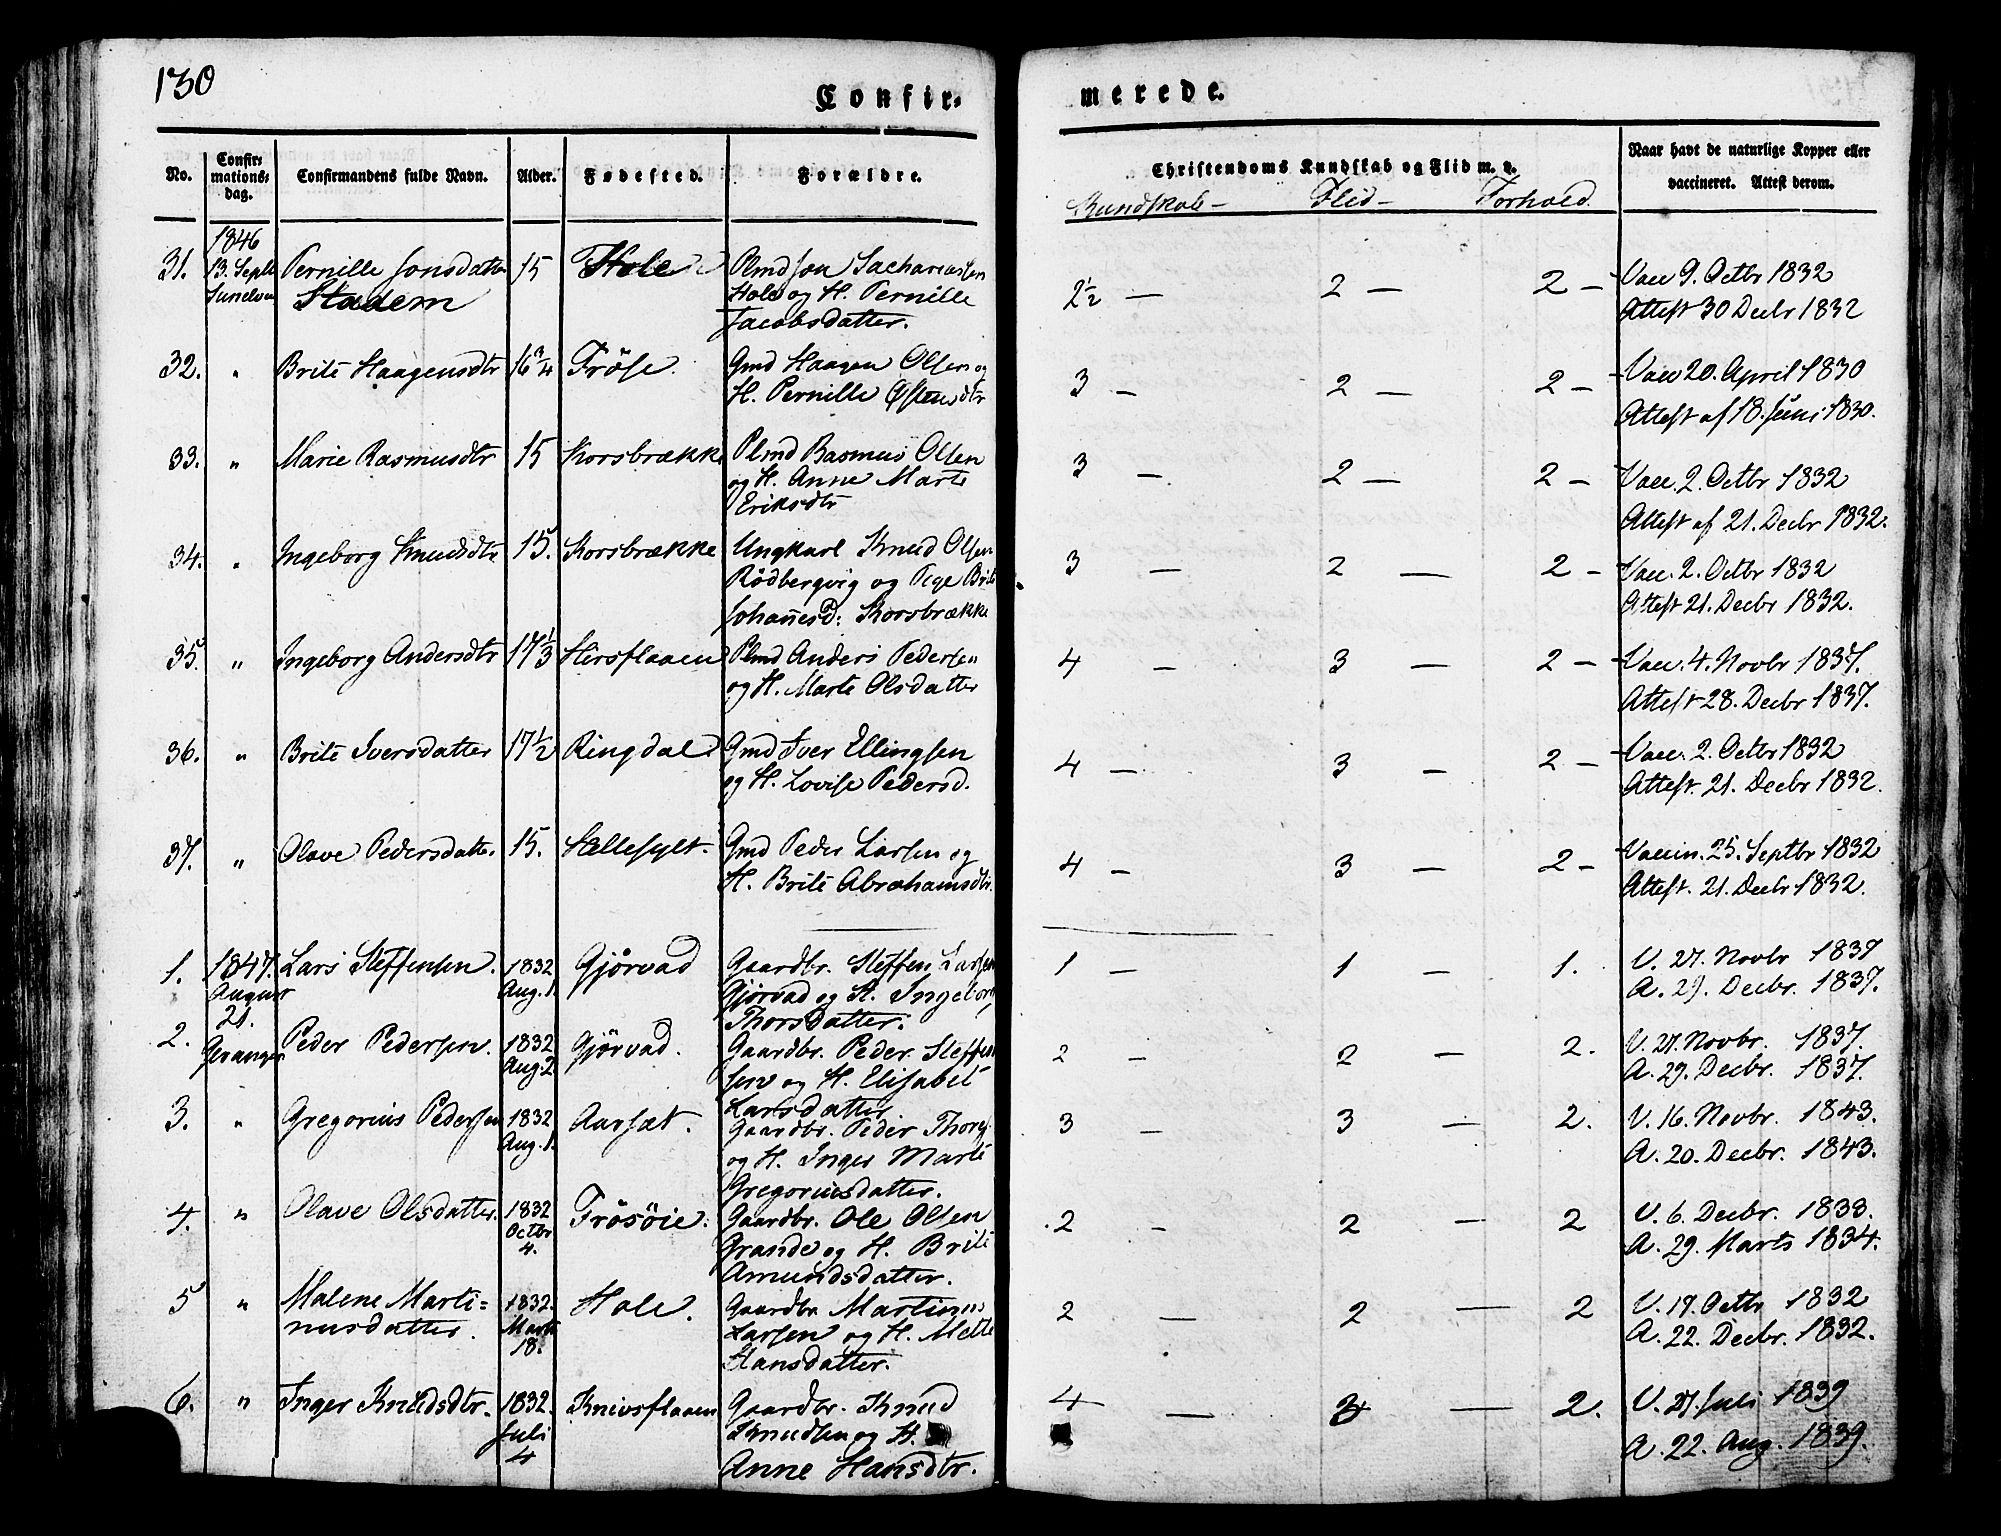 130
Confir-
merede.
No.
Confir-
mations-
dag.
Confirmandens fulde Navn.
Alder.
Fødested.
Forældre.
Christendoms Kundskab og Flid m. v.
Kundskab - Flid - Forhold.
Naar havt de naturlige Kopper eller
vaccineret. Attest derom.
1846
31. 13. Septb Pernille Jonsdatter 15 Hole Plmd Jon Sachariassen 2½ — 2 — 2 — Vac 9. Octbr 1832
Sunelven Stadem Hole og H. Pernille Attest 30 Decbr 1832
Jacobsdatter.
32. " Brite Haagensdtr 16¾ Fröse. Gmd Haagen Olsen og 3 — 2 — 2 — Vac 20. April 1830
H. Pernille Østensdtr Attest af 18. Juni 1830.
33. " Marie Rasmusdtr 15 Korsbrække Plmd Rasmus Olsen 3 — 2 — 2 — Vacc. 2. Octbr 1832
og H. Anne Marte Attest af 21. Decbr 1832.
Eriksdtr
34. " Ingeborg Knudsdtr 15. Korsbrække Ungkarl Knud Olsen 3 — 2 — 2 — Vacc. 2. Octbr 1832
Rödbergvig og Pige Brite Attest 21. Decbr 1832.
Johannesd: Korsbrække
35. " Ingeborg Andersdtr 17⅓ Hirsflaaen Plmd Anders Pedersen 4 — 3 — 2 — Vacc. 4. Novbr 1837.
og H. Marte Olsdatter Attest 28. Decbr 1837.
36. " Brite Iversdatter 17½ Ringdal Gmd Iver Ellingsen 4 — 3 — 2 — Vacc. 2. Octbr 1832
og H. Lovise Pedersd. Attest. 21. Decbr 1832.
37. " Olave Pedersdatter 15. Hellesylt. Gmd Peder Larsen og 4 — 3 — 2 — Vaccin. 25. Septbr 1832
H. Brite Abrahamsdtr. Attest. 21. Decbr 1832.
1. 1847. Lars Steffensen. 1832 Gjörvad Gaardbr. Steffen Larsen 1 — 1 — 1. V. 27. Novbr 1837
August Aug. 1. Gjörvad og H. Ingeborg A. 29. Decbr. 1837.
21. Thorsdatter.
2. Geranger Peder Pedersen. 1832 Gjörvad. Gaardbr. Peder Steffen 2 — 2 — 2. V. 27. Novbr. 1837.
Aug. 2 sen og H. Elisabet A. 29. Decbr. 1837.
Larsdatter.
3. " Gregorius Pedersen 1832 Aarsæt. Gaardbr. Peder Thorg. 3 — 3 — 2. V. 16. Novbr. 1843.
Aug. 1. og H. Inger Marte A. 20. Decbr. 1843.
Gregoriusdatter.
4. " Olave Olsdatter. 1832 Frösöie. Gaardbr. Ole Olsen 2 — 2 — 2 V. 6. Decbr. 1833.
Octbr Grande og H. Brite A. 29. Marts 1834.
4. Amundsdatter.
5 " Malene Marti= 1832. Hole. Gaardbr Martinus 2 — 2 — 2 V. 19. Octbr 1832
nusdatter. Marts Larsen og H. Mette A. 22. Decbr. 1832.
18. Hansdatter.
6. " Inger Knudsdtr. 1832. Knivsflaaen Gaardbr. Knud 4 — 3 — 2. V. 27. Juli 1839
Juli Knudsen og H. A. 22. Aug. 1839.
4 Anne Hansdtr.